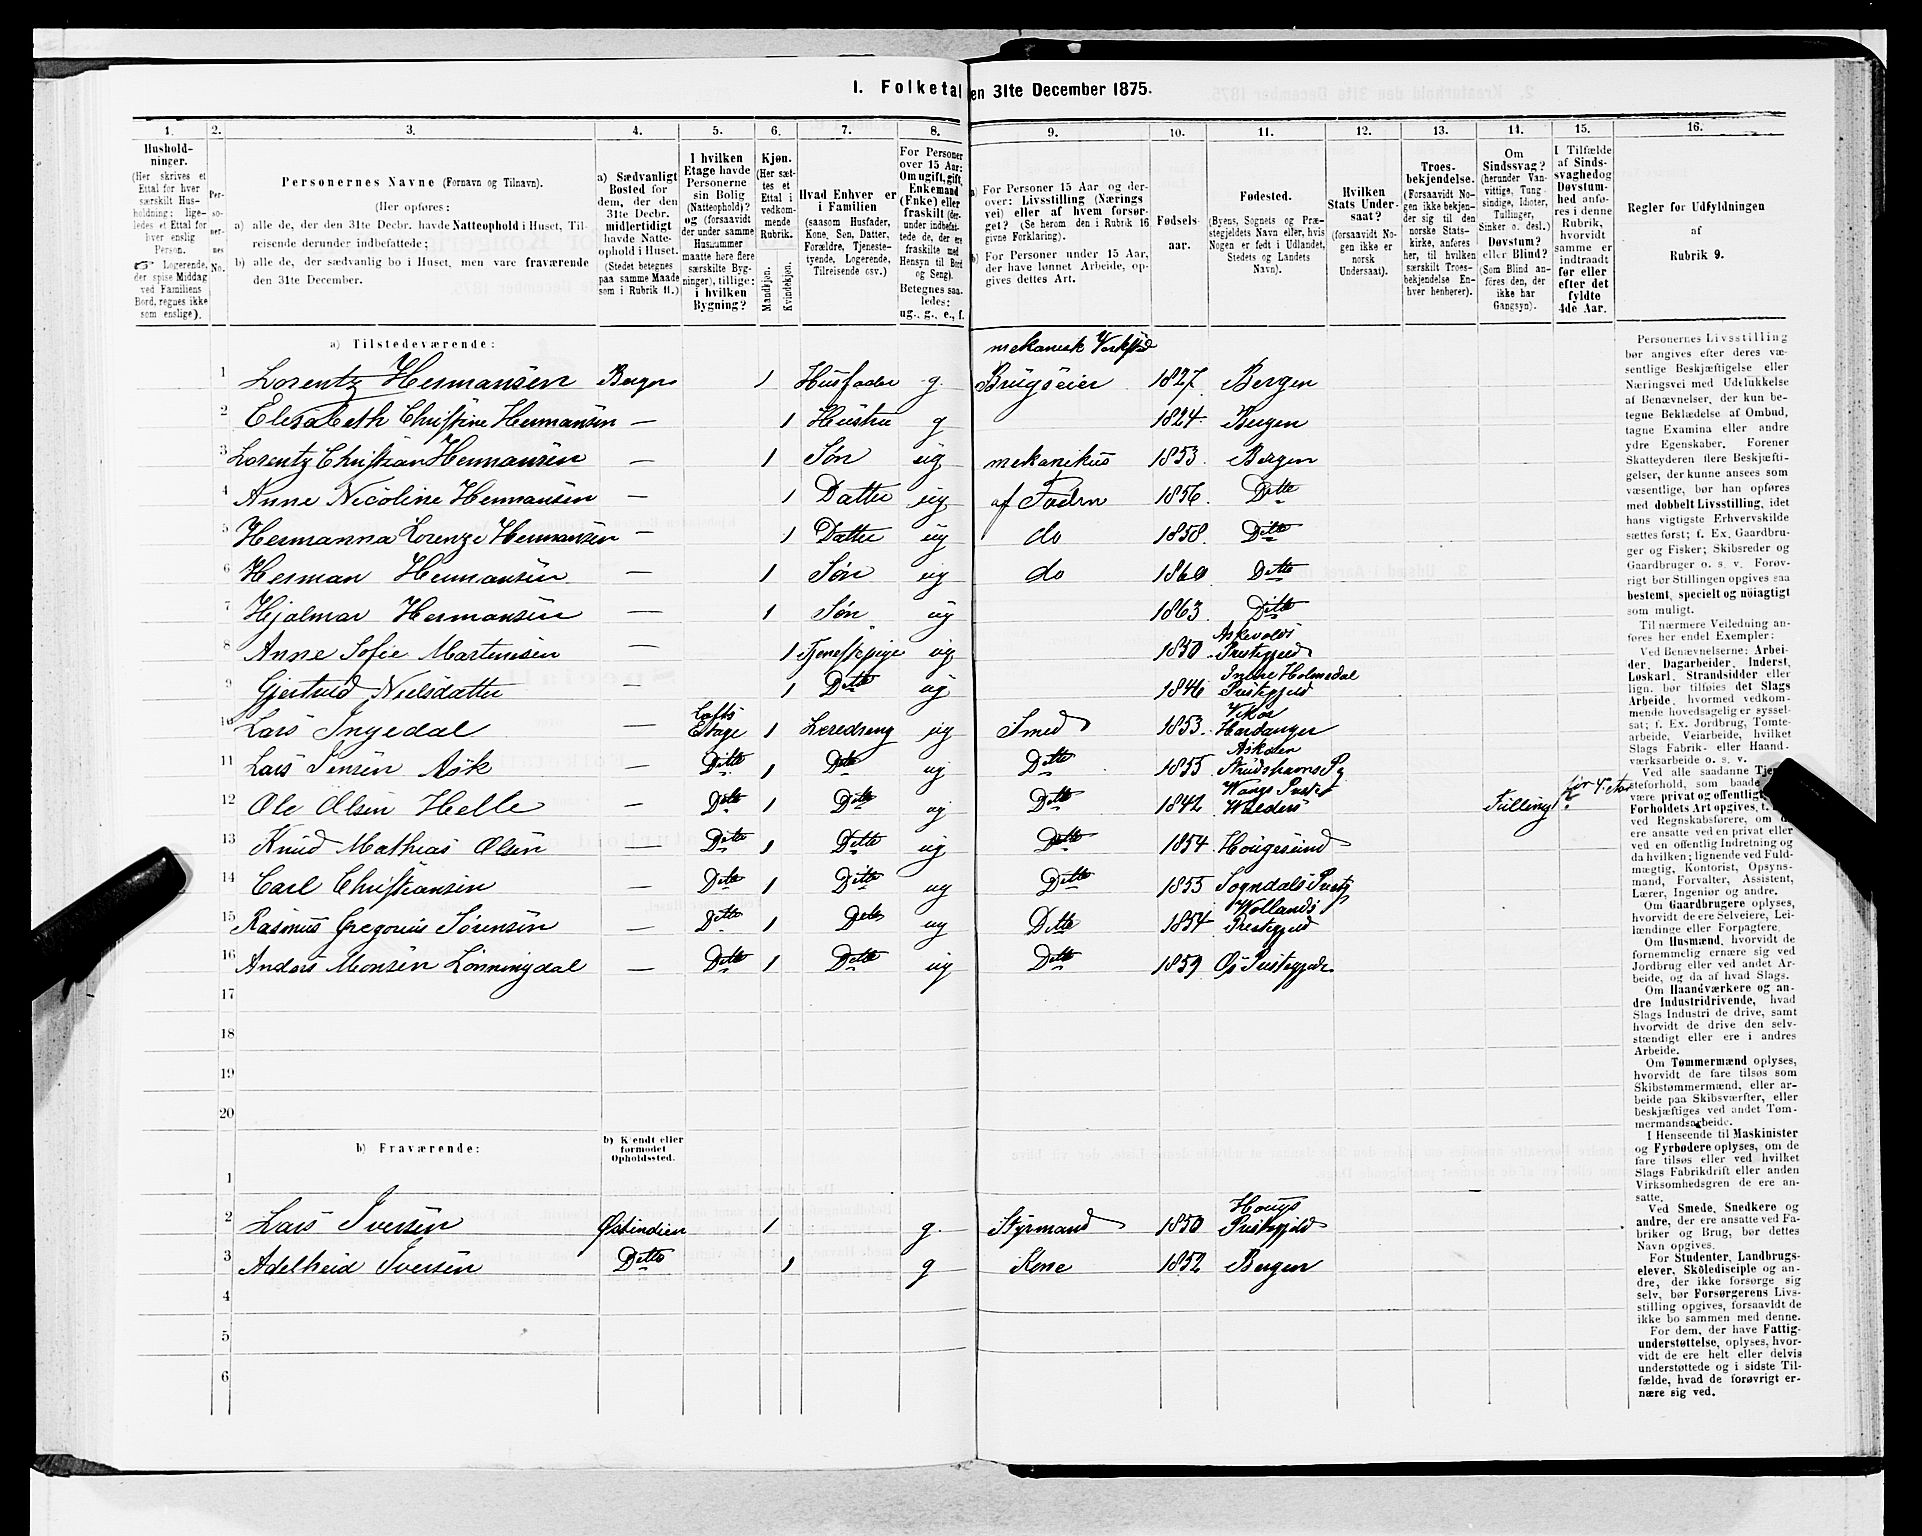 1. Folketal den 31te December 1875.
1. 2. 3. 4. 5. 6. 7. 8. 9. 10. 11. 12. 13. 14. 15. 16.
Hushold-
ninger.
(Her skrives et
Ettal for hver
særskilt Hus-
holdning; lige-
ledes et Ettal for
hver enslig
Person.
☞ Logerende,
der spise Middag
ved Familiens
Bord, regnes ikke
som enslige).
Per-
so-
ner-
nes
No.
Personernes Navne (Fornavn og Tilnavn).
(Her opføres:
a) alle de, der den 31te Decbr. havde Natteophold i Huset, Til-
reisende derunder indbefattede;
b) alle de, der sædvanlig bo i Huset, men vare fraværende
den 31te December.
a) Sædvanligt
Bosted for
dem, der den
31te Decbr.
midlertidigt
havde Natte-
ophold i Huset.
(Stedet betegnes
paa samme Maade
som i Rubrik 11.)
I hvilken
Etage havde
Personerne
sin Bolig
(Natteophold)?
og (forsaavidt
der under samme
Husnummer
maatte høre flere
særskilte Byg-
ninger), tillige:
i hvilken
Bygning?
Kjøn.
(Her sæt-
tes et
Ettal i
vedkom-
mende
Rubrik.
Mandkjøn.
Kvindekjøn.
Hvad Enhver er
i Familien
(saasom Husfader,
Kone, Søn, Datter,
Forældre, Tjeneste-
tyende, Logerende,
Tilreisende osv.)
For Personer
over 15 Aar:
Om ugift, gift,
Enkemand
(Enke) eller
fraskilt (der-
under indbefat-
tede de, der ere
fraskilte med
Hensyn til Bord
og Seng).
Betegnes saa-
ledes:
ug., g., e., f.
a) For Personer 15 Aar og der-
over: Livsstilling (Nærings
vei) eller af hvem forsør-
get? (Se herom den i Rubrik 16
givne Forklaring).
b) For Personer under 15 Aar,
der have lønnet Arbeide, op-
gives dettes Art.
Fødsels-
aar.
Fødested.
(Byens, Sognets og Præ-
stegjeldets Navn eller, hvis
Nogen er født i Udlandet,
Stedets og Landets
Navn).
Hvilken
Stats Under-
saat?
(forsaavidt No-
gen ikke er
norsk
Undersaat).
Troes-
bekjendelse.
(Forsaavidt No-
gen ikke bekjen-
der sig til den
norske Stats-
kirke, anføres
her, til hvilken
særskilt Troes-
bekjendelse En-
hver henhører).
Om
Sindssvag?
(herunder Van-
vittige, Tung-
sindige, Idioter,
Tullinger,
Sinker o. desl.)
Døvstum?
eller Blind?
(Som Blind an-
føres den, der
ikke har
Gangsyn).
I Tilfælde
af Sinds-
svaghed og
Døvstum-
hed anfø-
res i denne
Rubrik,
hvorvidt
samme er
indtraadt
før eller
efter det
fyldte
4de Aar.
Regler for Udfyldningen
af
Rubrik 9.
a) Tilstedeværende:
mekanisk Verksted
1 Lorentz Hermansen Bergen 1 Husfader g. Brugseier 1827. Bergen
2 Elesabeth Christine Hermansen — 1 Hustru g 1824. Bergen
3 Lorentz Christian Hermansen — 1 Søn ug mekanikus 1853. Bergen
4 Anne Nicoline Hermansen — 1 Datter ug af Fadern 1856. Ditto
5 Hermanna Lorenze Hermansen — 1 Datter ug do 1858. Ditto
6 Herman Hermansen — 1 Søn ug do 1860 Ditto
7 Hjalmar Hermansen — 1 Søn ug 1863. Ditto
Askevolds
8 Anne Sofie Martinusen — 1 Tjenestepige ug 1850 Prestegjeld
Indre Holmedal
9 Gjertrud Nielsdatter — 1 Ditto ug 1846 Prestegjeld
Lofts Vikør
10 Lars Ingedal — Etage 1 Læredreng ug Smed 1853. Hardanger
Askøen
11 Lars Jensen Ask — Ditto 1 Ditto ug Ditto 1855 Strudshavns Pg
Wangs Prest
12 Ole Olsen Helle — Ditto 1 Ditto ug Ditto 1842 Walders Tulling før 4. Aar
13 Knud Mathias Olsen — Ditto 1 Ditto ug Ditto 1854 Hougesund
14 Carl Christiansen — Ditto 1 Ditto ug Ditto 1855 Sogndals Prestg
15 Rasmus Gregorius Sørensen — Ditto 1 Ditto ug Ditto 1854 Prestegjeld
16 Anders Monsen Lønningdal — Ditto 1 Ditto ug Ditto 1859 Os Prestegjeld
17
18
19
20
b) Fraværende:
b) Kjendt eller
formodet
Opholdssted.
1
Hougs
2 Lars Iversen Østindien 1 g. Styrmand 1850 Prestegjeld
3 Adelheid Iversen Ditto 1 g Kone 1852 Bergen
4
5
6
Personernes Livsstilling
bør angives efter deres væ-
sentlige Beskjæftigelse eller
Næringsvei med Udelukkelse
af Benævnelser, der kun be-
tegne Beklædelse af Ombud,
tagne Examina eller andre
ydre Egenskaber. Forener
Skatteyderen flere Beskjæfti-
gelser, der kunne ansees som
væsentlige, bør han opføres
med dobbelt Livsstilling, idet
hans vigtigste Erhvervskilde
sættes først; f. Ex. Gaardbru-
ger og Fisker; Skibsreder og
Gaardbruger o. s. v. Forøv-
rigt bør Stillingen opgives saa
bestemt, specielt og nøiagtigt
som muligt.
Til nærmere Veiledning an-
føres her endel Exempler:
Ved Benævnelserne: Arbei-
der, Dagarbeider, Inderst,
Løskarl, Strandsidder eller
lign. bør tilføies det Slags
Arbeide, hvormed vedkom-
mende hovedsagelig er syssel-
sat; f. Ex. Jordbrug, Tomte-
arbeide, Veiarbeide, hvilket
Slags Fabrik- eller Haand-
værksarbeide o. s. v.
Ved alle saadanne Tje-
steforhold, som baade
være privat og offentligt,
Forholdets Art opgives, f.
ved Regnskabsførere, om d
ere ansatte ved en privat eller
ved en offentlig Indretning og
da hvilken; lignende ved Fuld-
mægtig, Kontorist, Opsyns-
mand, Forvalter, Assistent,
Lærer, Ingeniør og andre.
Om Gaardbrugere oplyses,
hvorvidt de ere Selveiere, Lei-
lændinge eller Forpagtere.
Om Husmænd, hvorvidt de
fornemmelig ernære sig ved
Jordbrug eller ved andet Ar-
beide, og da af hvad Slags.
Om Haandværkere og an-
dre Industridrivende, hvad
Slags Industri de drive, samt
hvorvidt de drive den selv-
stændigt eller ere i andres
Arbeide.
Om Tømmermænd oplyses,
hvorvidt de fare tilsøs som
Skibstømmermænd, eller ar-
beide paa Skibsværfter, eller
beskjæftiges ved andet Tøm-
mermandsarbeide.
I Henseende til Maskinister
og Fyrbødere oplyses, om de
fare tilsøs eller ved hvilket
Slags Fabrikdrift eller anden
Virksomhedsgren de ere an-
satte.
Ved Smede, Snedkere og
andre, der ere ansatte ved Fa-
briker og Brug, bør dettes
Navn opgives.
For Studenter, Landbrugs-
elever, Skoledisciple og an-
dre, der ikke forsørge sig
selv, bør Forsørgerens Livs-
stilling opgives, forsaavidt de
ikke bo sammen med denne.
For dem, der have Fattig-
understøttelse, oplyses, hvor-
vidt de ere helt eller delvis
understøttede og i sidste Til-
fælde, hvad de forøvrigt er-
nære sig ved.